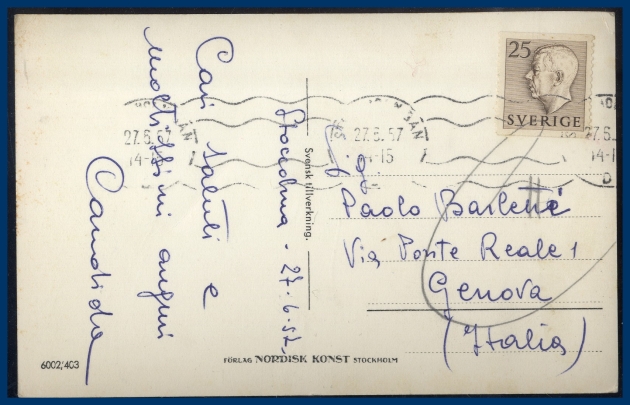 Cari saluti e
moltissimi auguri
Candida
Stoccolma - 27-6-57
Svensk tillverkning.
25
SVERIGE
27.6.57
14-15
27.6.57
14-15
27.6.5
14-1
D
Sig
Paolo
Via Ponte Reale 1
Genova
(Italia)
6002/403
FÖRLAG NORDISK KONST STOCKHOLM